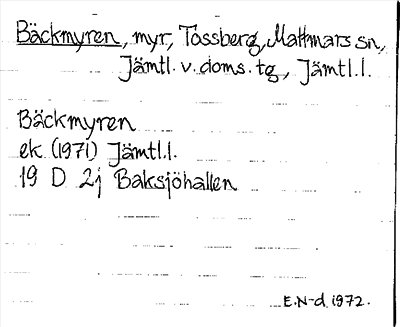 Bäckmyren, myr, Tossberg, Mattmars sn,
Jämtl. v. doms. tg, Jämtl. l.
Bäckmyren
ek (1971) Jämtl.l.
19 D 2j Baksjöhallen
E.N-d. 1972.